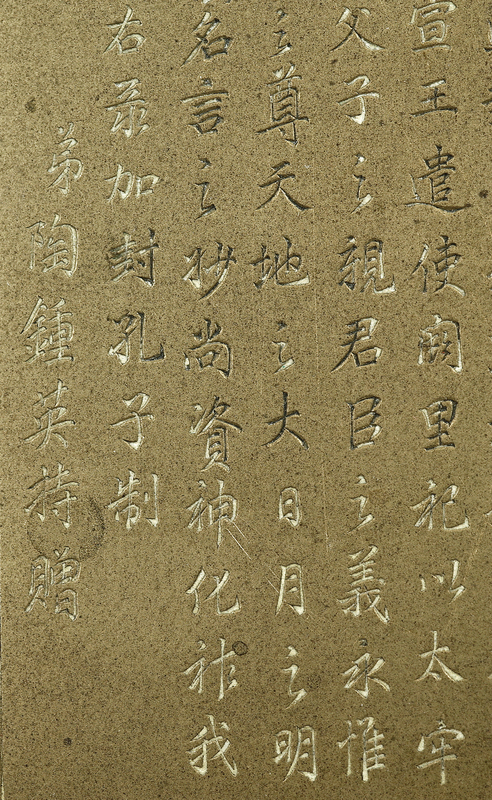 宣王遣使阙里祀以太牢
父子之親君臣之義永惟
之尊天地之大日月之明
名言之妙尚資神化祚我
右录加封孔子制
弟陶鍾英持贈